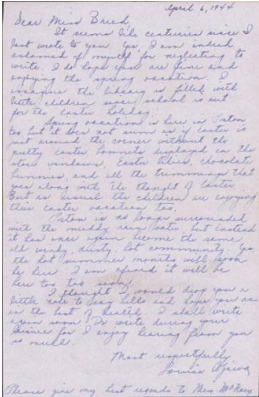 April 6, 1944
Dear Miss Breed,
It seems like centuries since I
last wrote to you. Yes, I am indeed
ashamed of myself for neglecting to
write. I do hope you are fine and
enjoying the spring vacation. I
imagine the library is filled with
little children since school is out
for the Easter holiday.
Spring vacation is here in Poston
too but it does not seem as if Easter is
just around the corner without the
pretty Easter bonnets displayed in the
store windows, Easter lilies, chocolate
bunnies, and all the trimmings that
goes along with the thought of Easter.
But as usual the children are enjoying
their Easter vacation too.
Poston is no longer surrounded
with the muddy rainy water, but instead
it has once again become the same
old dusty, dirty, hot community. Yes,
the hot summer months will soon
be here. I am afraid it will be
here too too soon!
I thought I would drop you a
little note to say hello and hope you are
in the best of health. I shall write
again soon. Do write during your
leisure for I enjoy hearing from you
so much.
Most respectfully,
Louise Ogawa
Please give my best regards to Miss McNary